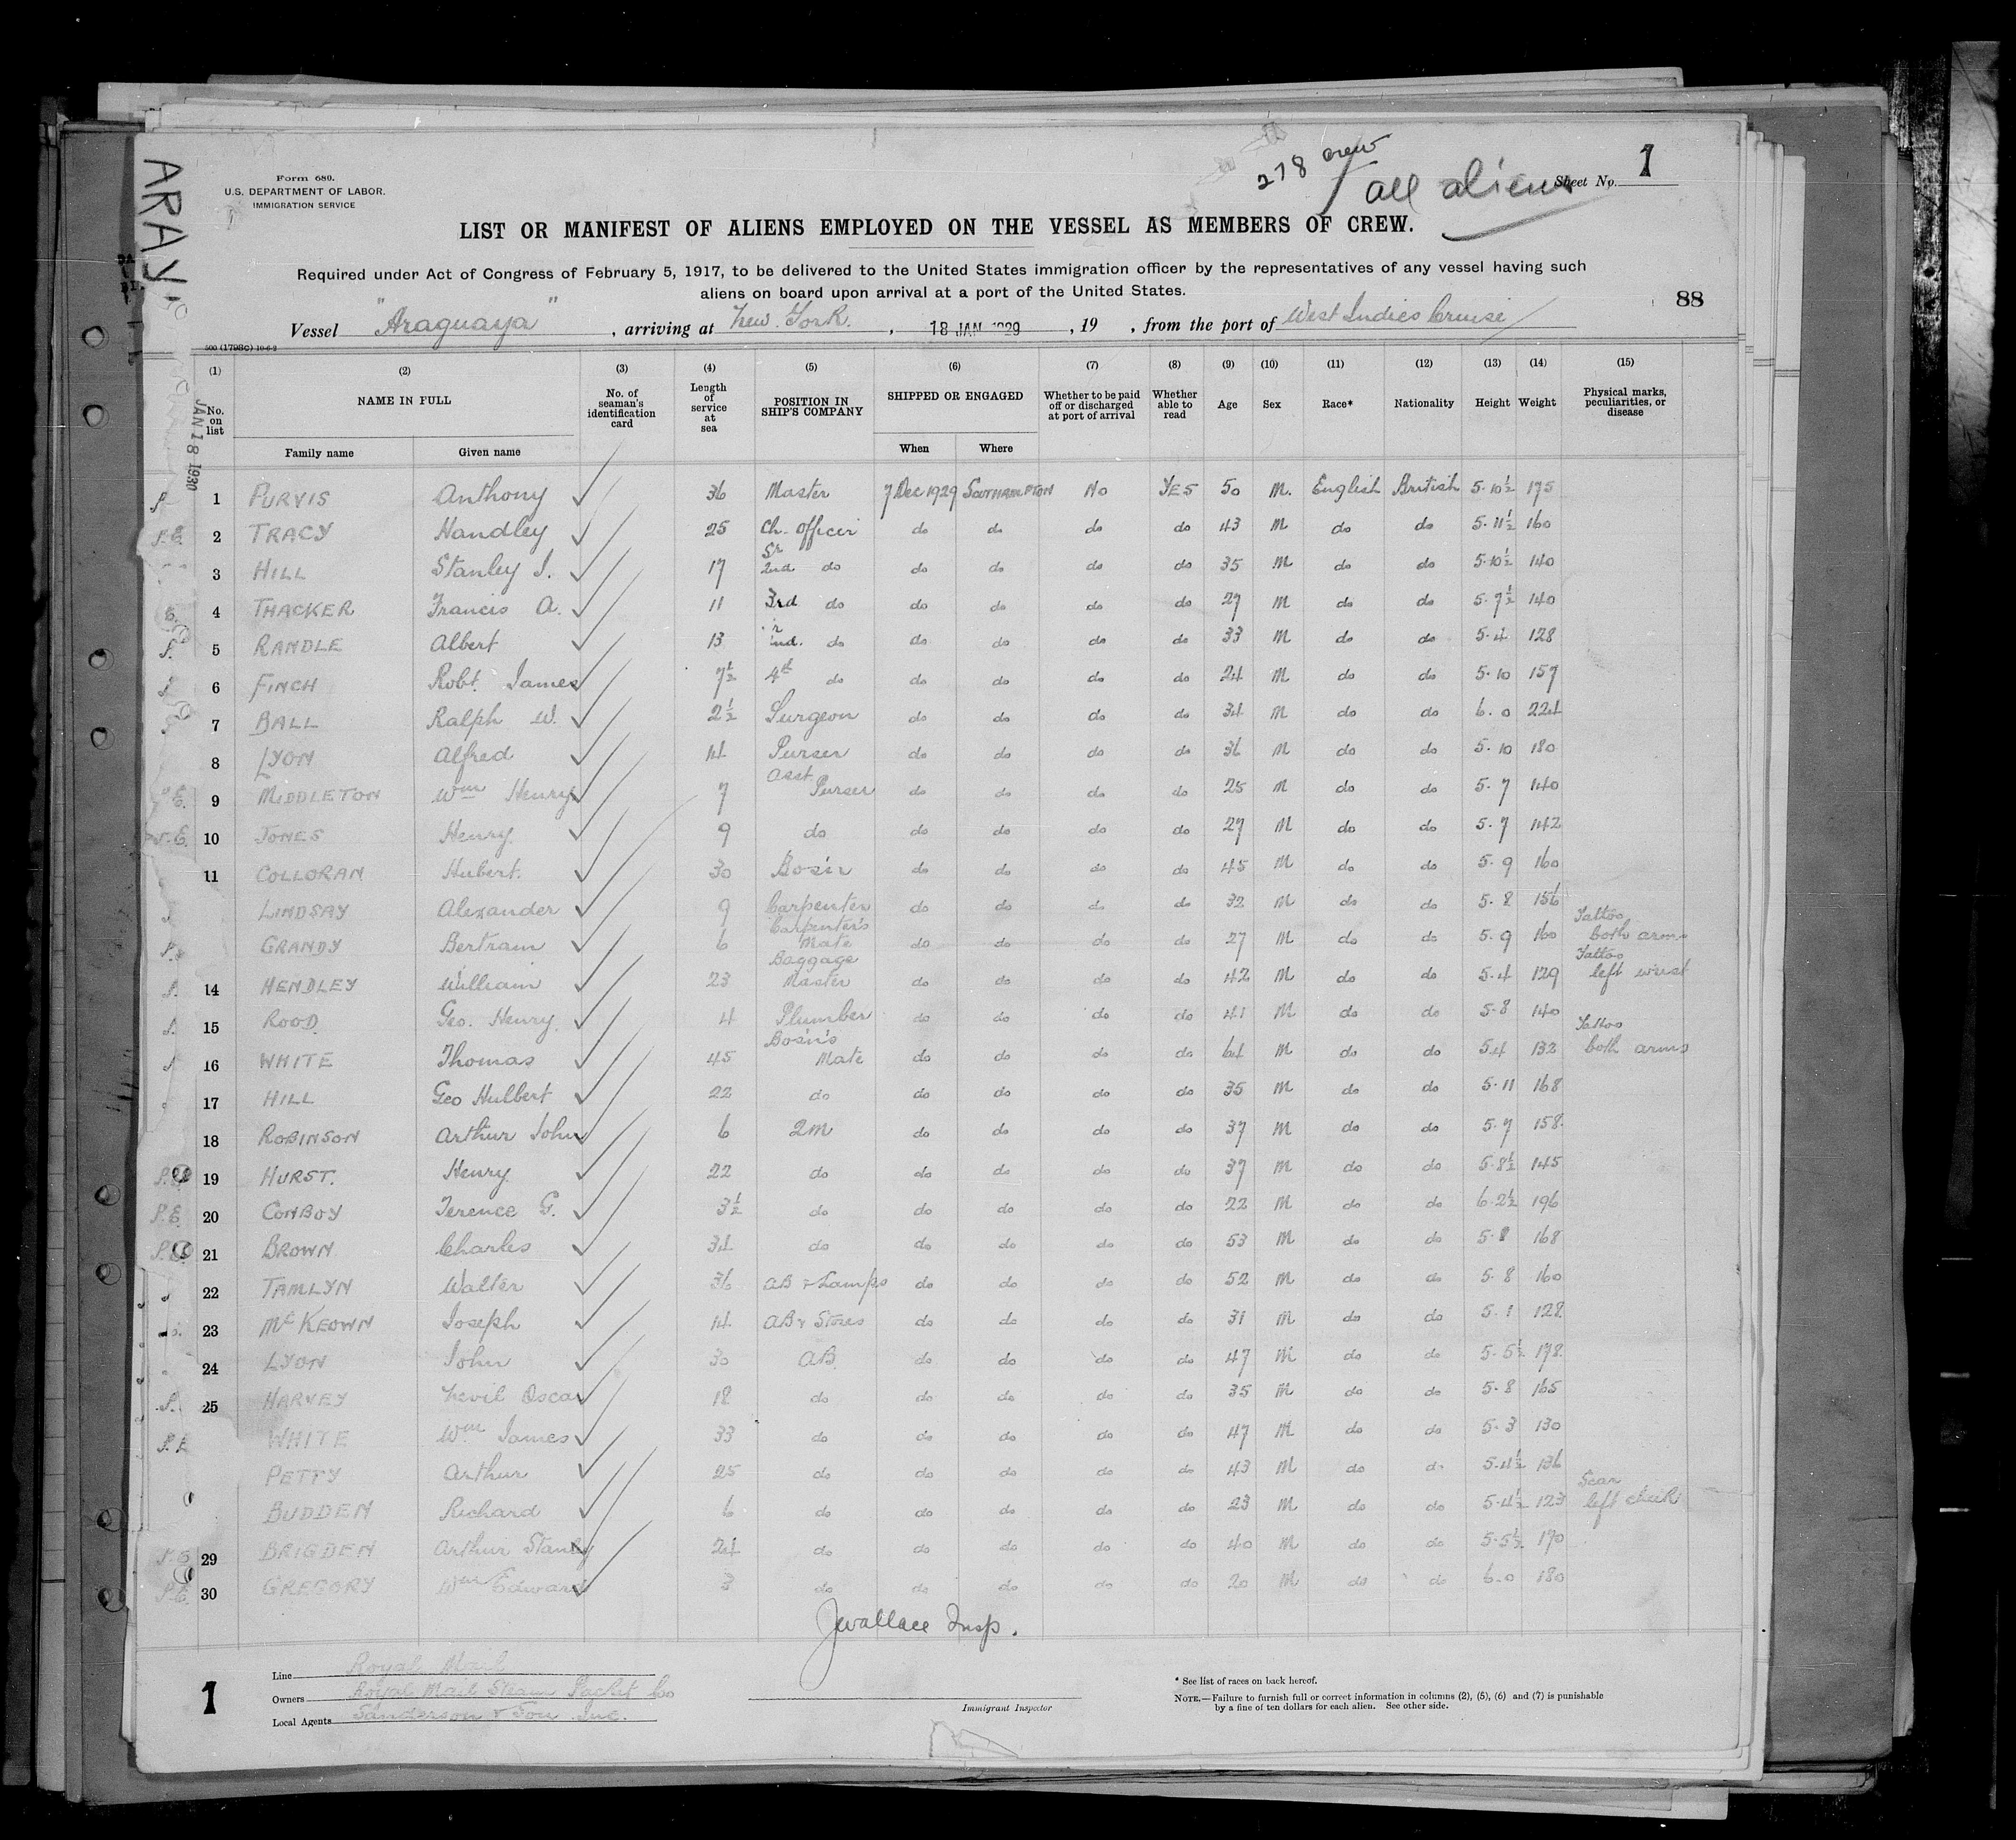 ARAY
JAN 18 1930
278 crew
all aliens
Sheet No. 1
Form 680.
U.S. DEPARTMENT OF LABOR.
IMMIGRATION SERVICE
LIST OR MANIFEST OF ALIENS EMPLOYED ON THE VESSEL AS MEMBERS OF CREW.
Required under Act of Congress of February 5, 1917, to be delivered to the United States immigration officer by the representatives of any vessel having such
aliens on board upon arrival at a port of the United States.
88
Vessel "Araguaya", arriving at New York., 18 JAN 1929, 19 , from the port of West Indies Cruise
500 (1798c) 10-6-2
(1) (2) (3) (4) (5) (6) (7) (8) (9) (10) (11) (12) (13) (14) (15)
No. on list NAME IN FULL Family name Given name No. of seaman's identification card Length of service at sea POSITION IN SHIP'S COMPANY SHIPPED OR ENGAGED When Where Whether to be paid off or discharged at port of arrival Whether able to read Age Sex Race* Nationality Height Weight Physical marks, peculiarities, or disease
1 PURVIS Anthony 36 Master 7 Dec 1929 SOUTHAMPTON No YES 50 M. English British 5-10½ 175
2 TRACY Handley 25 Ch. Officer do do do do 43 M do do 5-11½ 160
3 HILL Stanley J. 17 Sr 2nd do do do do do 35 M do do 5-10½ 140
4 THACKER Francis A. 11 3rd do do do do do 27 M do do 5-7½ 140
5 RANDLE Albert 13 nd. do do do do do 33 M do do 5-4 128
6 FINCH Robt. James 7½ 4th do do do do do 24 M do do 5-10 157
7 BALL Ralph W. 2½ Surgeon do do do do 34 M do do 6-0 224
8 LYON Alfred 14 Purser do do do do 36 M do do 5-10 180
9 MIDDLETON Wm Henry 7 Asst Purser do do do do 25 M do do 5-7 140
10 JONES Henry 9 do do do do do 27 M do do 5-7 142
11 COLLORAN Hubert. 30 Bosin do do do do 45 M do do 5-9 160
LINDSAY Alexander 9 Carpenter do do do do 32 M do do 5-8 156
GRANDY Bertram 6 Carpenter's Mate do do do do 27 M do do 5-9 160 Tattoo both arms
14 HENDLEY William 23 Baggage Master do do do do 42 M do do 5-4 129 Tattoo left wrist
15 ROOD. Geo. Henry. 4 Plumber do do do do 41 M do do 5-8 140
16 WHITE Thomas 45 Bosin's Mate do do do do 64 M do do 5-4 132 Tattoo both arms
17 HILL Geo Hulbert 22 do do do do do 35 M do do 5-11 168
18 ROBINSON Arthur John 6 2M do do do do 37 M do do 5-7 158
19 HURST. Henry 22 do do do do do 37 M do do 5-8½ 145
20 CONBOY Terence G. 3½ do do do do do 22 M do do 6-2½ 196
21 BROWN Charles 34 do do do do do 53 M do do 5-8 168
22 TAMLYN Walter 36 AB & Lamps do do do do 52 M do do 5-8 160
23 McKEOWN Joseph 14 AB & Stores do do do do 31 M do do 5-1 128
24 LYON John 30 AB do do do do 47 M do do 5-5½ 178
25 HARVEY Nevil Oscar 18 do do do do do 35 M do do 5-8 165
WHITE Wm James 33 do do do do do 47 M do do 5-3 130
PETTY Arthur 25 do do do do do 43 M do do 5-4½ 136
BUDDEN Richard 6 do do do do do 23 M do do 5-4½ 123 Scar left cheek
29 BRIGDEN Arthur Stanley 24 do do do do do 40 M do do 5-5½ 170
30 GREGORY Wm Edward 3 do do do do do 20 M do do 6-0 180
JWallace Insp.
Immigrant Inspector
1
Line Royal Mail
Owners Royal Mail Steam Packet Co
Local Agents Sanderson & Son Inc.
* See list of races on back hereof.
NOTE.—Failure to furnish full or correct information in columns (2), (5), (6) and (7) is punishable
by a fine of ten dollars for each alien. See other side.